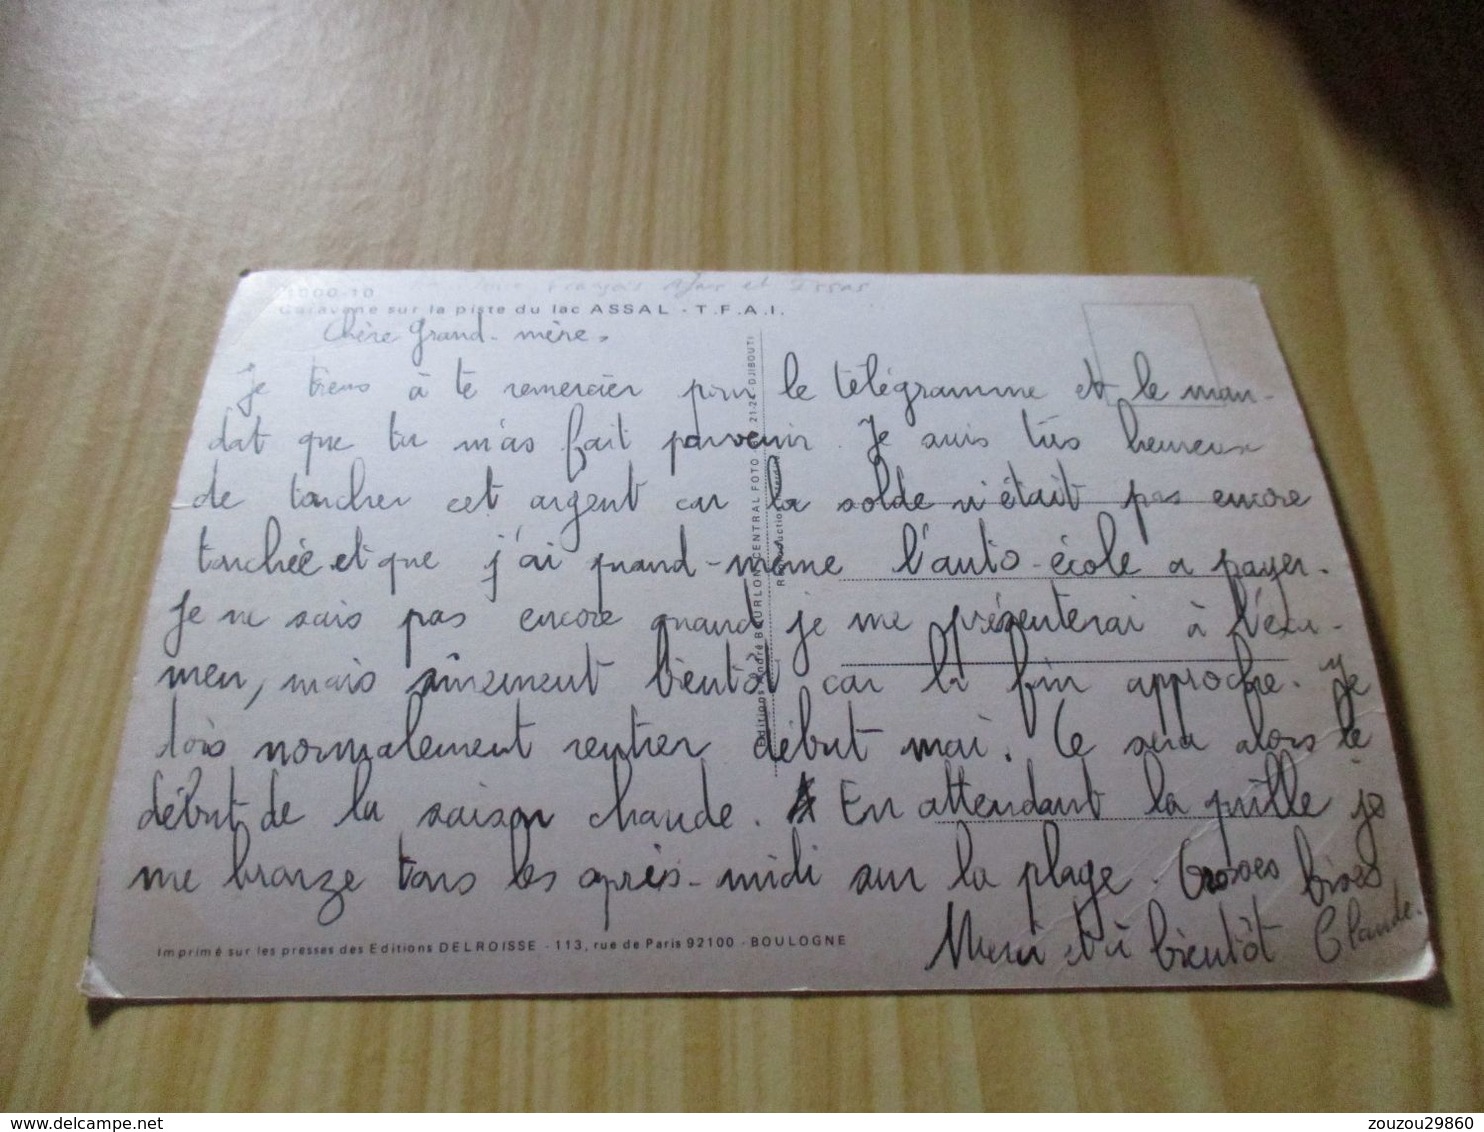 Français Afars et Issas
1000-10
Caravane sur la piste du lac ASSAL - T.F.A.I.
Chère Grand-mère,
Je tiens à te remercier pour le télégramme et le man-
dat que tu m'as fait parvenir. Je suis très heureux
de toucher cet argent car la solde n'était pas encore
touchée et que j'ai quand-même l'auto-école a payer.
Je ne sais pas encore quand je me présenterai à l'éxa-
men, mais sûrement bientôt car la fin approche. Je
dois normalement rentrer début mai. Ce sera alors le
début de la saison chaude. En attendant la quille je
me bronze tous les après-midi sur la plage. Grosses bises
Merci et à bientôt Claude.
Editions André BOURLON CENTRAL FOTO 21.24 DJIBOUTI
Reproduction
Imprimé sur les presses des Editions DELROISSE - 113, rue de Paris 92100 - BOULOGNE
zouzou29860